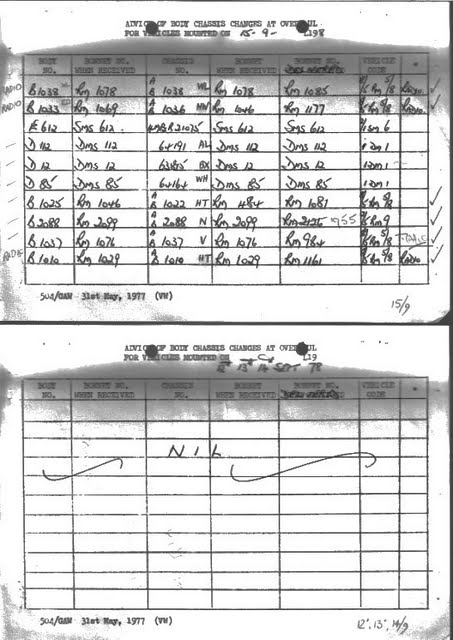 ADVICE OF BODY CHASSIS CHANGES AT OVERHAUL
FOR VEHICLES MOUNTED ON 15-9- 198
BODY NO. BONNET NO. WHEN RECEIVED CHASSIS NO. BONNET NO. WHEN RECEIVED BONNET NO. VEHICLE CODE
RADIO B1038 Rm 1078 A B 1038 WL Rm 1078 Rm 1085 Rm 5/8 RADIO ✓
RADIO B1033 Rm 1069 A B 1036 Rm 1046 Rm 1177 Rm RADIO ✓
E612 Sms 612 21075 Sms 612 Sms 612 1 sm 6
D112 Dms 112 64191 AL Dms 112 Dms 112 1 Dm 1
D12 Dms 12 BX Dms 12 Dms 12 1 Dm 1
D85 Dms 85 64164 WH Dms 85 Dms 85 1 Dm 1
B1025 Rm 1046 A B 1022 HT Rm 484 Rm 1081 Rm ✓
B2088 Rm 2099 A B 2088 N Rm 2099 Rm 2126 1955 Rm 9 ✓
B1037 Rm 1076 A B 1037 V Rm 1076 Rm 984 Rm 5/8 ✓
B1010 Rm 1029 A B 1010 HT Rm 1029 Rm 1161 Rm 5/8 RADIO ✓
504/GAW 31st May, 1977 (VW)
15/9
ADVICE OF BODY CHASSIS CHANGES AT OVERHAUL
FOR VEHICLES MOUNTED ON 19
12 13 14 SEPT 78
BODY NO. BONNET NO. WHEN RECEIVED CHASSIS NO. BONNET NO. WHEN RECEIVED BONNET NO. VEHICLE CODE
NIL
504/GAW 31st May, 1977 (VW)
12, 13, 14/9